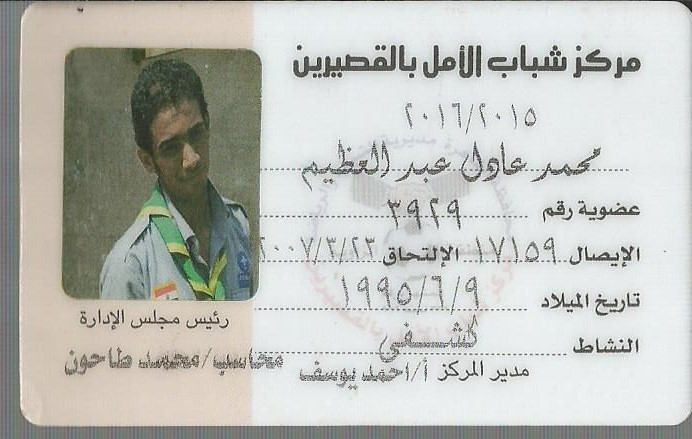 مركز شباب الأمل بالقصيرين
٢٠١٦/٢٠١٥
محمد عادل عبد العظيم
عضوية رقم ٣٩٢٩
الإيصال ١٧١٥٩ الإلتحاق ٢٠٠٧/٢/٢٣
تاريخ الميلاد ١٩٩٥/٦/٩
النشاط كشفي
مدير المركز أ/احمد يوسف
رئيس مجلس الإدارة
محاسب/محمد طاحون